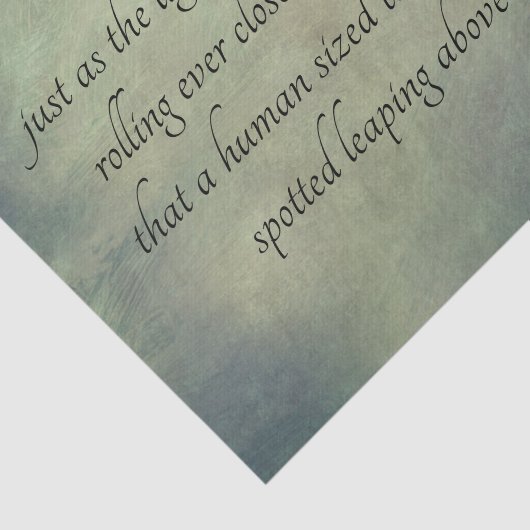 just as the
rolling ever close
that a human sized
spotted leaping above